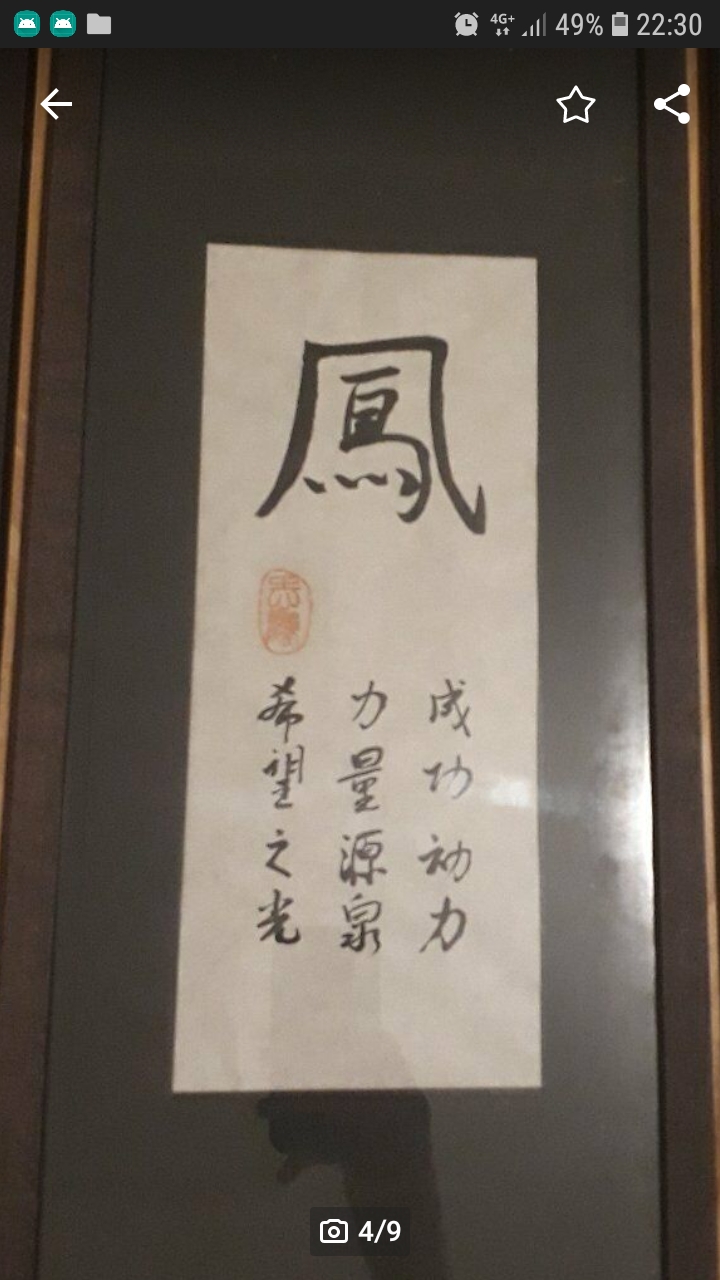 4G+ 49% 22:30
鳳
成功動力
力量源泉
希望之光
4/9